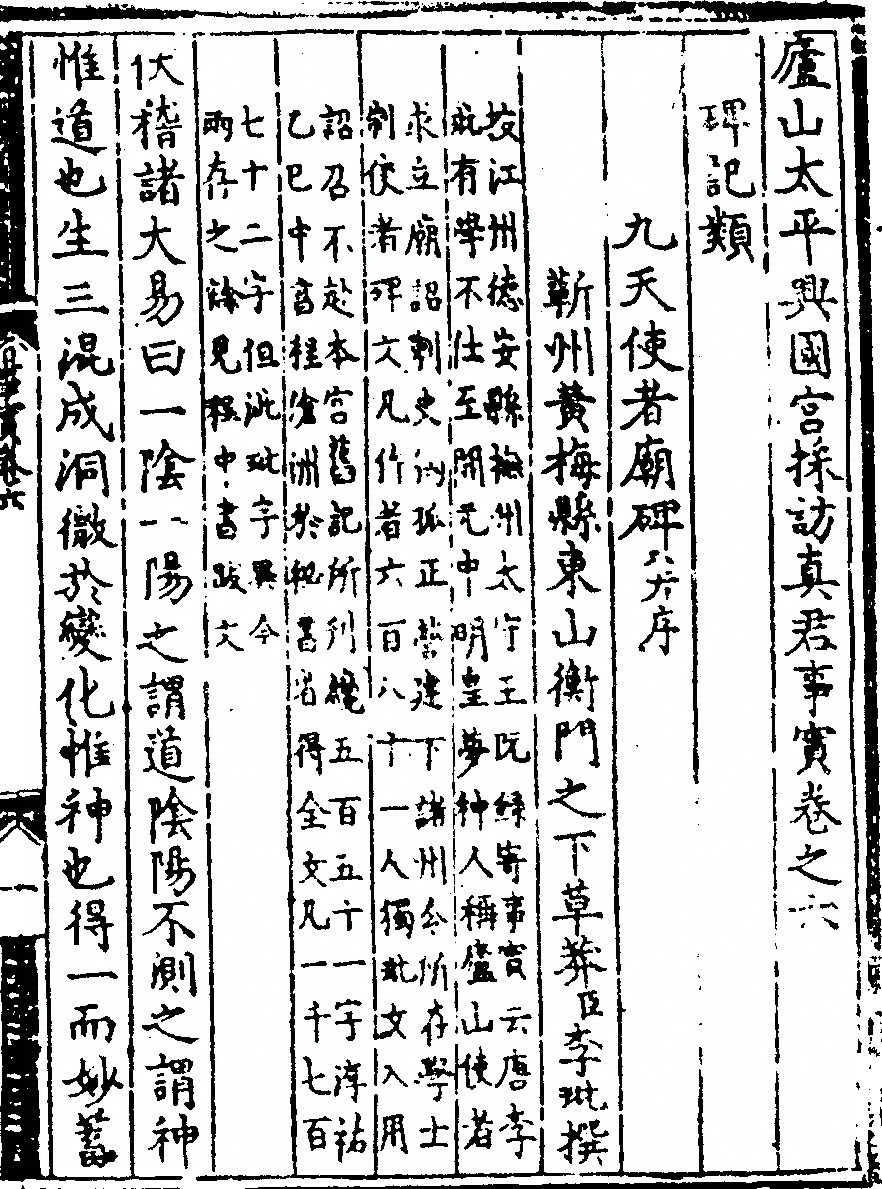 廬山太平興國宮採訪真君事實卷之六
碑記類
九天使者廟碑并序
蘄州黃梅縣東山衡門之下草莽臣李玭撰
按江州德安縣撫州太守王阮録寄事實云唐李
玭有學不仕至開元中明皇夢神人稱廬山使者
求立廟詔刺史獨孤正營建下諸州令所在學士
制使者碑文凡作者六百八十一人獨玭文入用
詔召不赴本宮舊記所刊纔五百五十一字淳祐
乙巳中書程滄洲於秘書省得全文凡一千七百
七十二字但泚玭字異今
兩存之餘見程中書跋文
伏稽諸大易曰一陰一陽之謂道陰陽不測之謂神
惟道也生三混成洞徹於變化惟神也得一而妙蓄
宮事實卷六
一